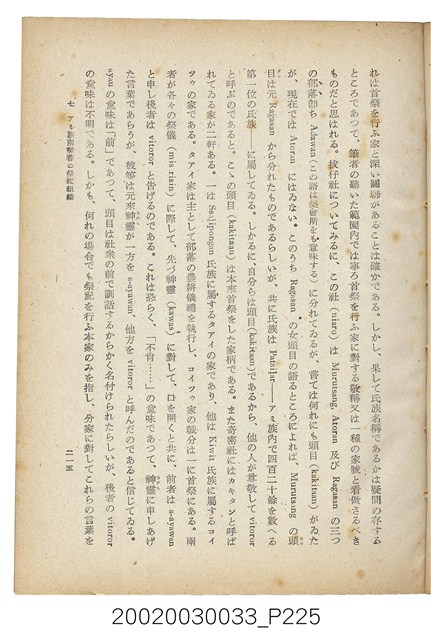 れは首祭を行ふ家と深い關聯のあることは確かである。しかし、果して氏族名稱であるかは疑問の存する
ところであつて、筆者の聽いた範圍内では寧ろ首祭を行ふ家に對する敬稱又は一種の家號と看做さるべき
ものだと思はれる。拔仔社についてみるに、この社 (niaro) は Murutsang, Atoran 及び Ragasan の三つ
の部落、卽ち Adawan (この語は集會所をも意味する) に分れてゐるが、嘗ては何れにも頭目 (kakitaan) がゐた
が、現在では Atoran にはゐない。このうち Ragasan の女頭目の語るところによれば、Murutsang の頭
目は元 Ragasan から分れたものであるらしいが、共に氏族は Patsilar——アミ族内で四百二十餘を數へる
第一位の氏族——に屬してゐる。しかるに、自分らは頭目(kakitaan)であるから、他の人が尊敬して vitoror
と呼ぶのであると。こゝの頭目 (kakitaan) は本來首祭をした家柄である。また奇密社にはカキタンと呼ば
れてゐる家が二軒ある。一は Tsilipongan 氏族に屬するタアイの家であり、他は Kiwi 氏族に屬するコイ
ツゥの家である。タアイ家は主として部落の農耕儀禮を執行し、コイツゥ家の職分は一に首祭にある。兩
者が各々の祭儀 (mi_risin) に際して、先づ神靈 (kawas) に對して、口を開くと共に、前者は s-ayawan
と申し後者は vitoror と告げるのである。これは恐らく、「不肖……」の意味であつて、神靈に申しあげ
た言葉であらうが、彼等は元來神靈が一方を s-ayawan、他方を vitoror と呼んだのであると信じてゐる。
ayan の意味は「前」であつて、頭目は社衆の前で訓話するからかく名付けられたらしいが、後者の vitoror
の意味は不明である。しかも、何れの場合でも祭祀を行ふ本家のみを指し、分家に對してこれらの言葉を
七 アミ族南勢番の祭祀組織
二一五
20020030033_P225